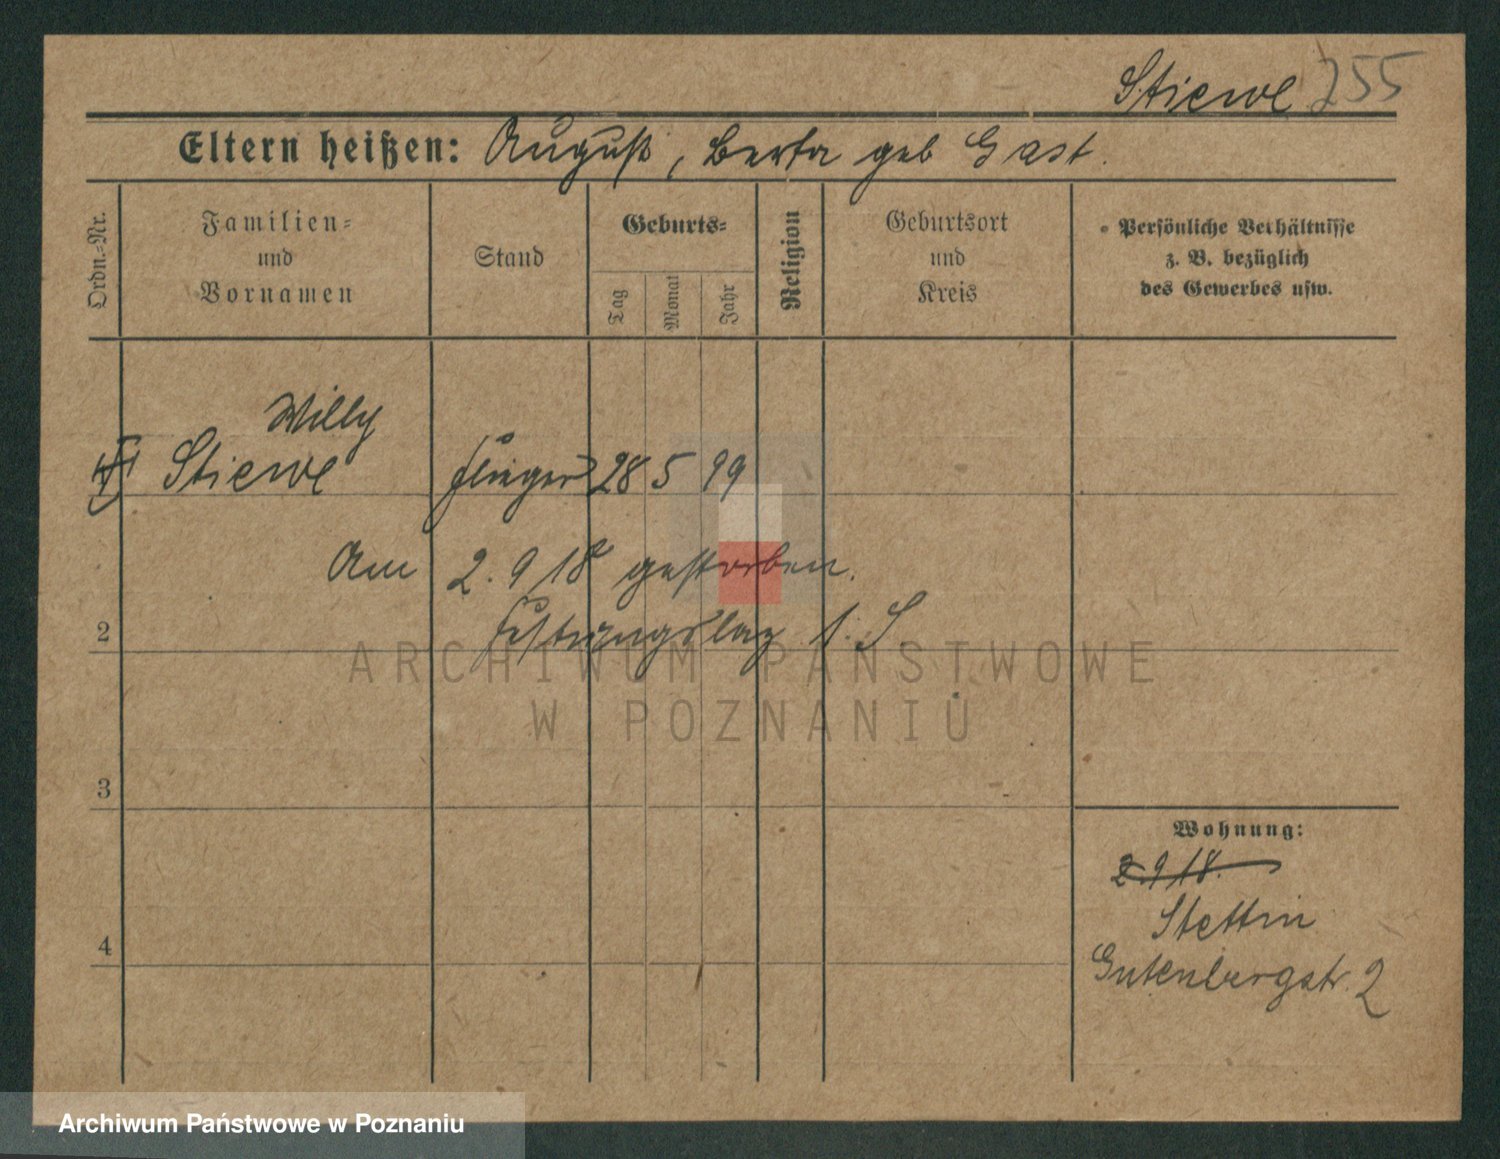 Stiewe 255
Eltern heißen: August, Berta geb Gast.
Ordn.-Nr.
Familien-
und
Vornamen
Stand
Geburts-
Tag
Monat
Jahr
Religion
Geburtsort
und
Kreis
Persönliche Verhältnisse
z. B. bezüglich
des Gewerbes usw.
Willy
Stiewe Flieger 28 5 99
Am 2. 9 18 gestorben.
2 Festungslaz I. S
ARCHIWUM PAŃSTWOWE
W POZNANIU
3
Wohnung:
2.9 18.
Stettin
4
Gutenbergstr. 2
Archiwum Państwowe w Poznaniu